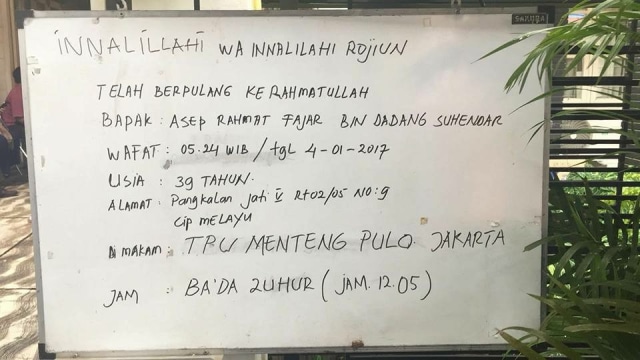 SAKURA
INNALILLAHI WA INNALILAHI ROJIUN
TELAH BERPULANG KE RAHMATULLAH
BAPAK : ASEP RAHMAT FAJAR BIN DADANG SUHENDAR
WAFAT : 05.24 WIB / tgL 4-01-2017
USIA : 39 TAHUN.
ALAMAT : Pangkalan Jati V Rt02/05 NO:9
CIP MELAYU
DI MAKAM : TPU MENTENG PULO JAKARTA
JAM : BA'DA ZUHUR (JAM. 12.05)